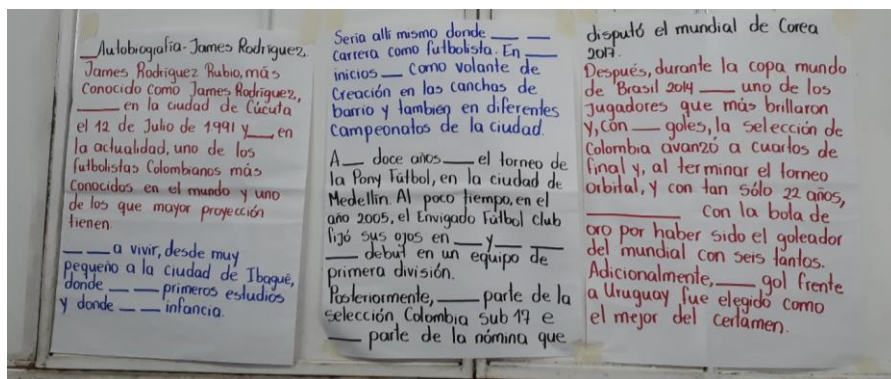 _Autobiografía-James Rodriguez.
James Rodriguez Rubio, más
Conocido como James Rodríguez,
_____ en la ciudad de Cúcuta
el 12 de Julio de 1991 y ____ en
la actualidad, uno de los
futbolistas Colombianos más
conocidos en el mundo y uno
de los que mayor proyección
tienen.
____ ____ a vivir, desde muy
pequeño a la ciudad de Ibagué,
donde ____ ____ primeros estudios
y donde ____ ____ infancia.
Seria allí mismo donde ____ ____
carrera como futbolista. En ____
inicios ___ como volante de
creación en las canchas de
barrio y tambien en diferentes
campeonatos de la ciudad.
A___ doce años ____ el torneo de
la Pony Fútbol, en la ciudad de
Medellin. Al poco tiempo, en el
año 2005, el Envigado Fútbol club
fijó sus ojos en ____ y ____ ____
____ debut en un equipo de
primera división.
Posteriormente, ____ parte de la
selección Colombia sub 17 e
____ parte de la nómina que
disputó el mundial de Corea
2017.
Después, durante la copa mundo
de Brasil 2014 ____ uno de los
jugadores que más brillaron
y, con ____ goles, la selección de
Colombia avanzó a cuartos de
final y, al terminar el torneo
orbital, y con tan sólo 22 años,
_________ con la bola de
oro por haber sido el goleador
del mundial con seis tantos.
Adicionalmente, ____ gol frente
a Uruguay fue elegido como
el mejor del certamen.